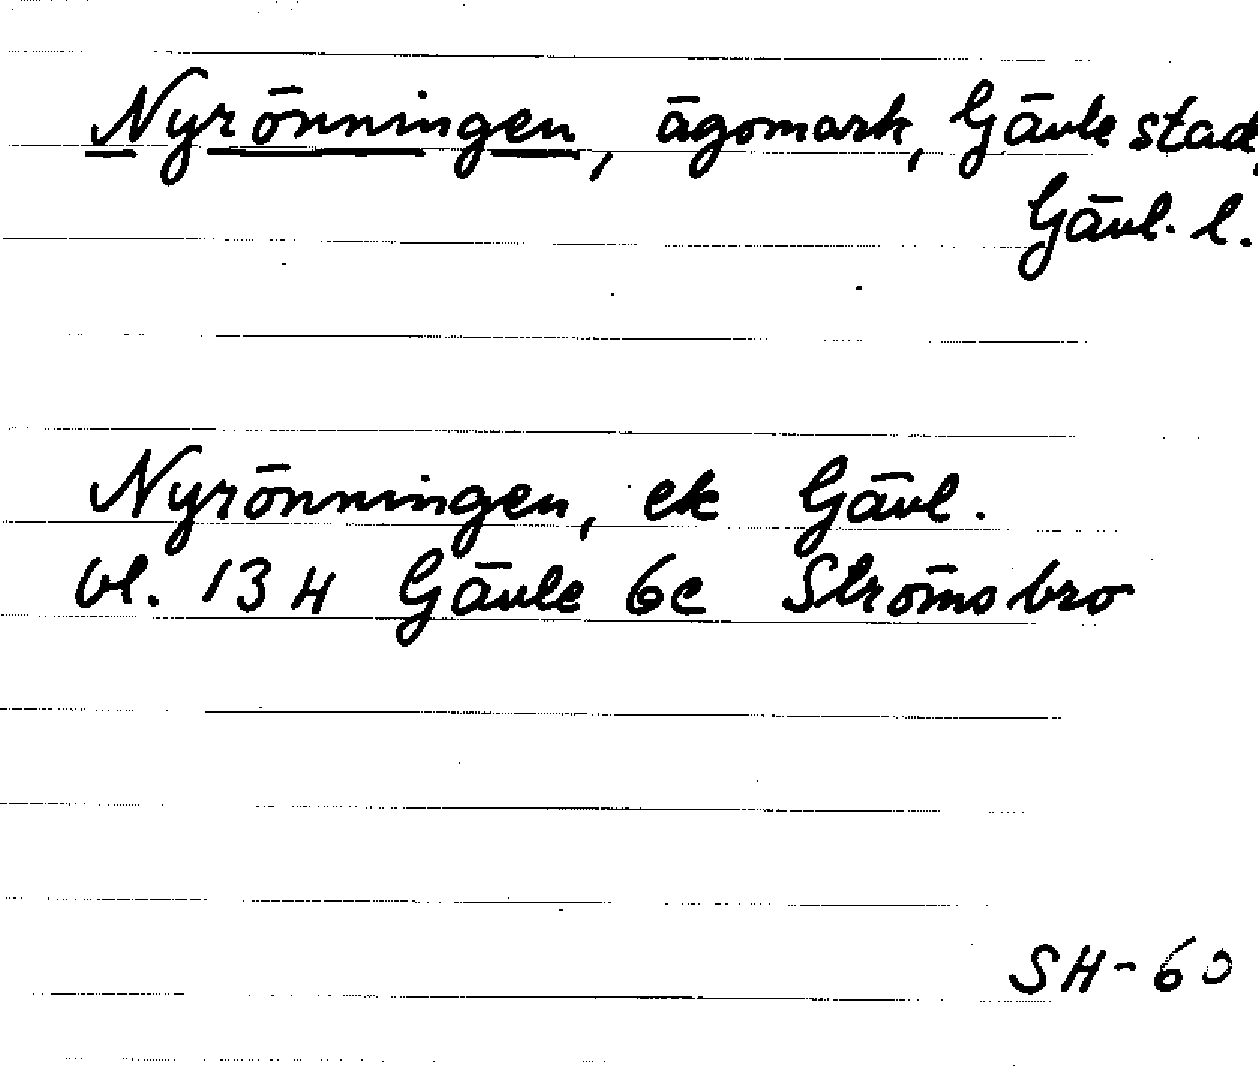 Nyrönningen, ägomark, Gävle stad,
Gävl. l.
Nyrönningen, ek Gävl.
bl. 13 H Gävle 6c Strömsbro
SH-60